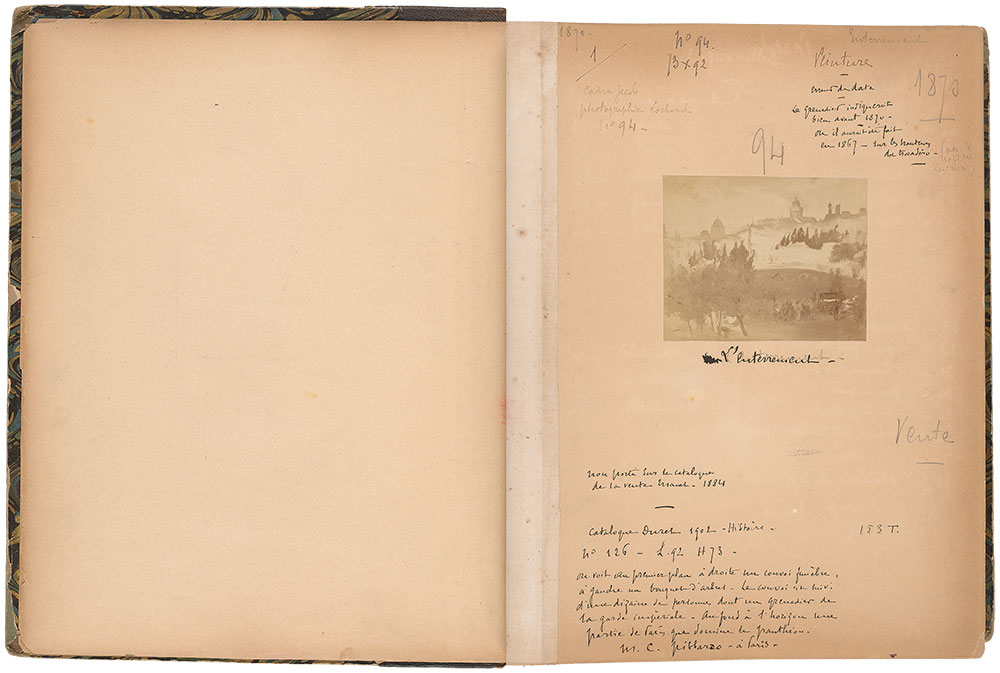 1870.
1
No 94.
73 x 92
Enterrement
Peinture
1870
cadre Jacob
photographie Lochard
No 94 -
erreur de date
Le grenadier indiquerait
bien avant 1870 -
ou il aurait été fait
en 1867 - sur les hauteurs
du trocadéro -
94
L'enterrement -
Vente
non porté sur le catalogue
de la vente Manet - 1884
Catalogue Duret 1902 - Histoire -
153 T.
No 126 - L. 92 H 73 -
on voit au premier plan à droite un convoi funèbre,
à gauche un bouquet d'arbres - Le convoi est suivi
d'une dizaine de personnes dont un grenadier de
la garde impériale - Au fond à l'horizon une
partie de Paris que domine le panthéon.
M. C. Pissarro - à Paris -